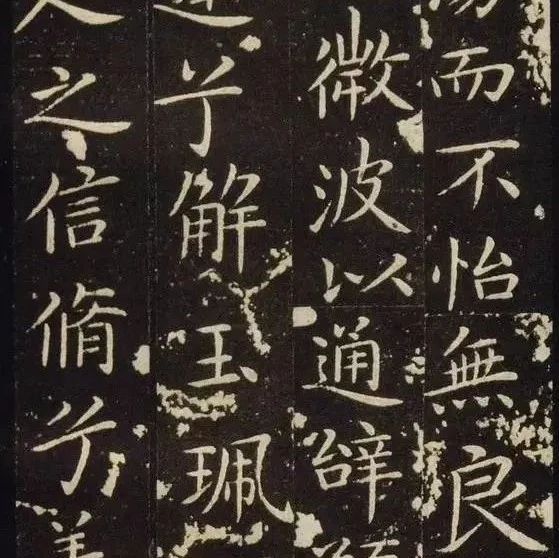 而不怡無良
微波以通辭
兮解玉珮
人之信脩兮